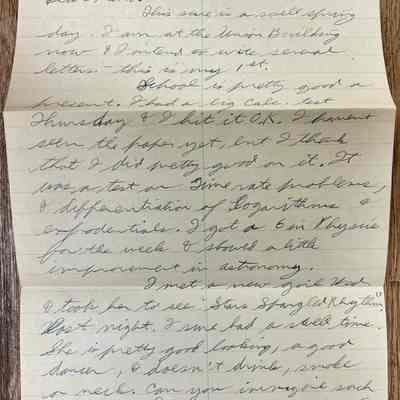 This sure is a swell spring
day. I am at the Union Building
now & I intend to write several
letters - this is my 1st.
School is pretty good at
present. I had a big Calc. test
Thursday & I hit it O.K. I havent
seen the paper yet, but I think
that I did pretty good on it. It
was a test on Time rate problems,
& differentiation of Logarithms &
expodentials. I got a B in Physics
for the week & showed a little
improvement in astronomy.
I met a new girl Wed
& took her to see "Stars Spangled Rhythm"
last night. I sure had a swell time.
She is pretty good looking, a good
dancer, & doesn't drink, smoke
or neck. Can you imagine such